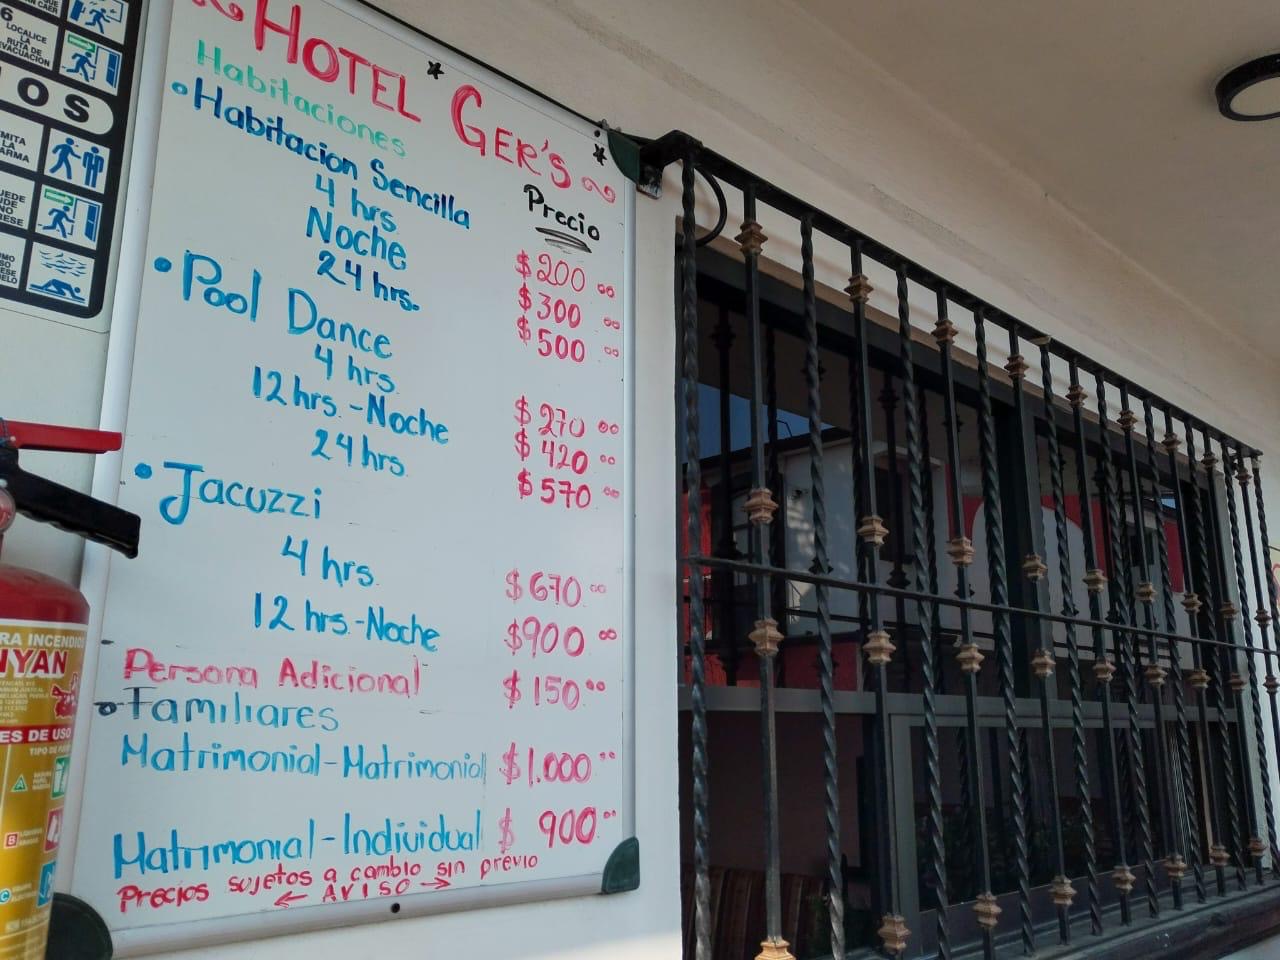 HOTEL GER'S
Habitaciones
Precio
• Habitacion Sencilla
4 hrs. $200 00
Noche $300 00
24 hrs. $500 00
• Pool Dance
4 hrs. $270 00
12 hrs.-Noche $420 00
24 hrs. $570 00
• Jacuzzi
4 hrs. $670 00
12 hrs.-Noche $900 00
Persona Adicional $150 00
Familiares
Matrimonial-Matrimonial $1.000 00
Matrimonial-Individual $900 00
Precios sujetos a cambio sin previo
← AVISO →
6
LOCALICE
LA
RUTA DE
EVACUACION
OS
LA
NO
RA INCENDIOS
NYAN
ES DE USO
TIPO DE
A
B
C